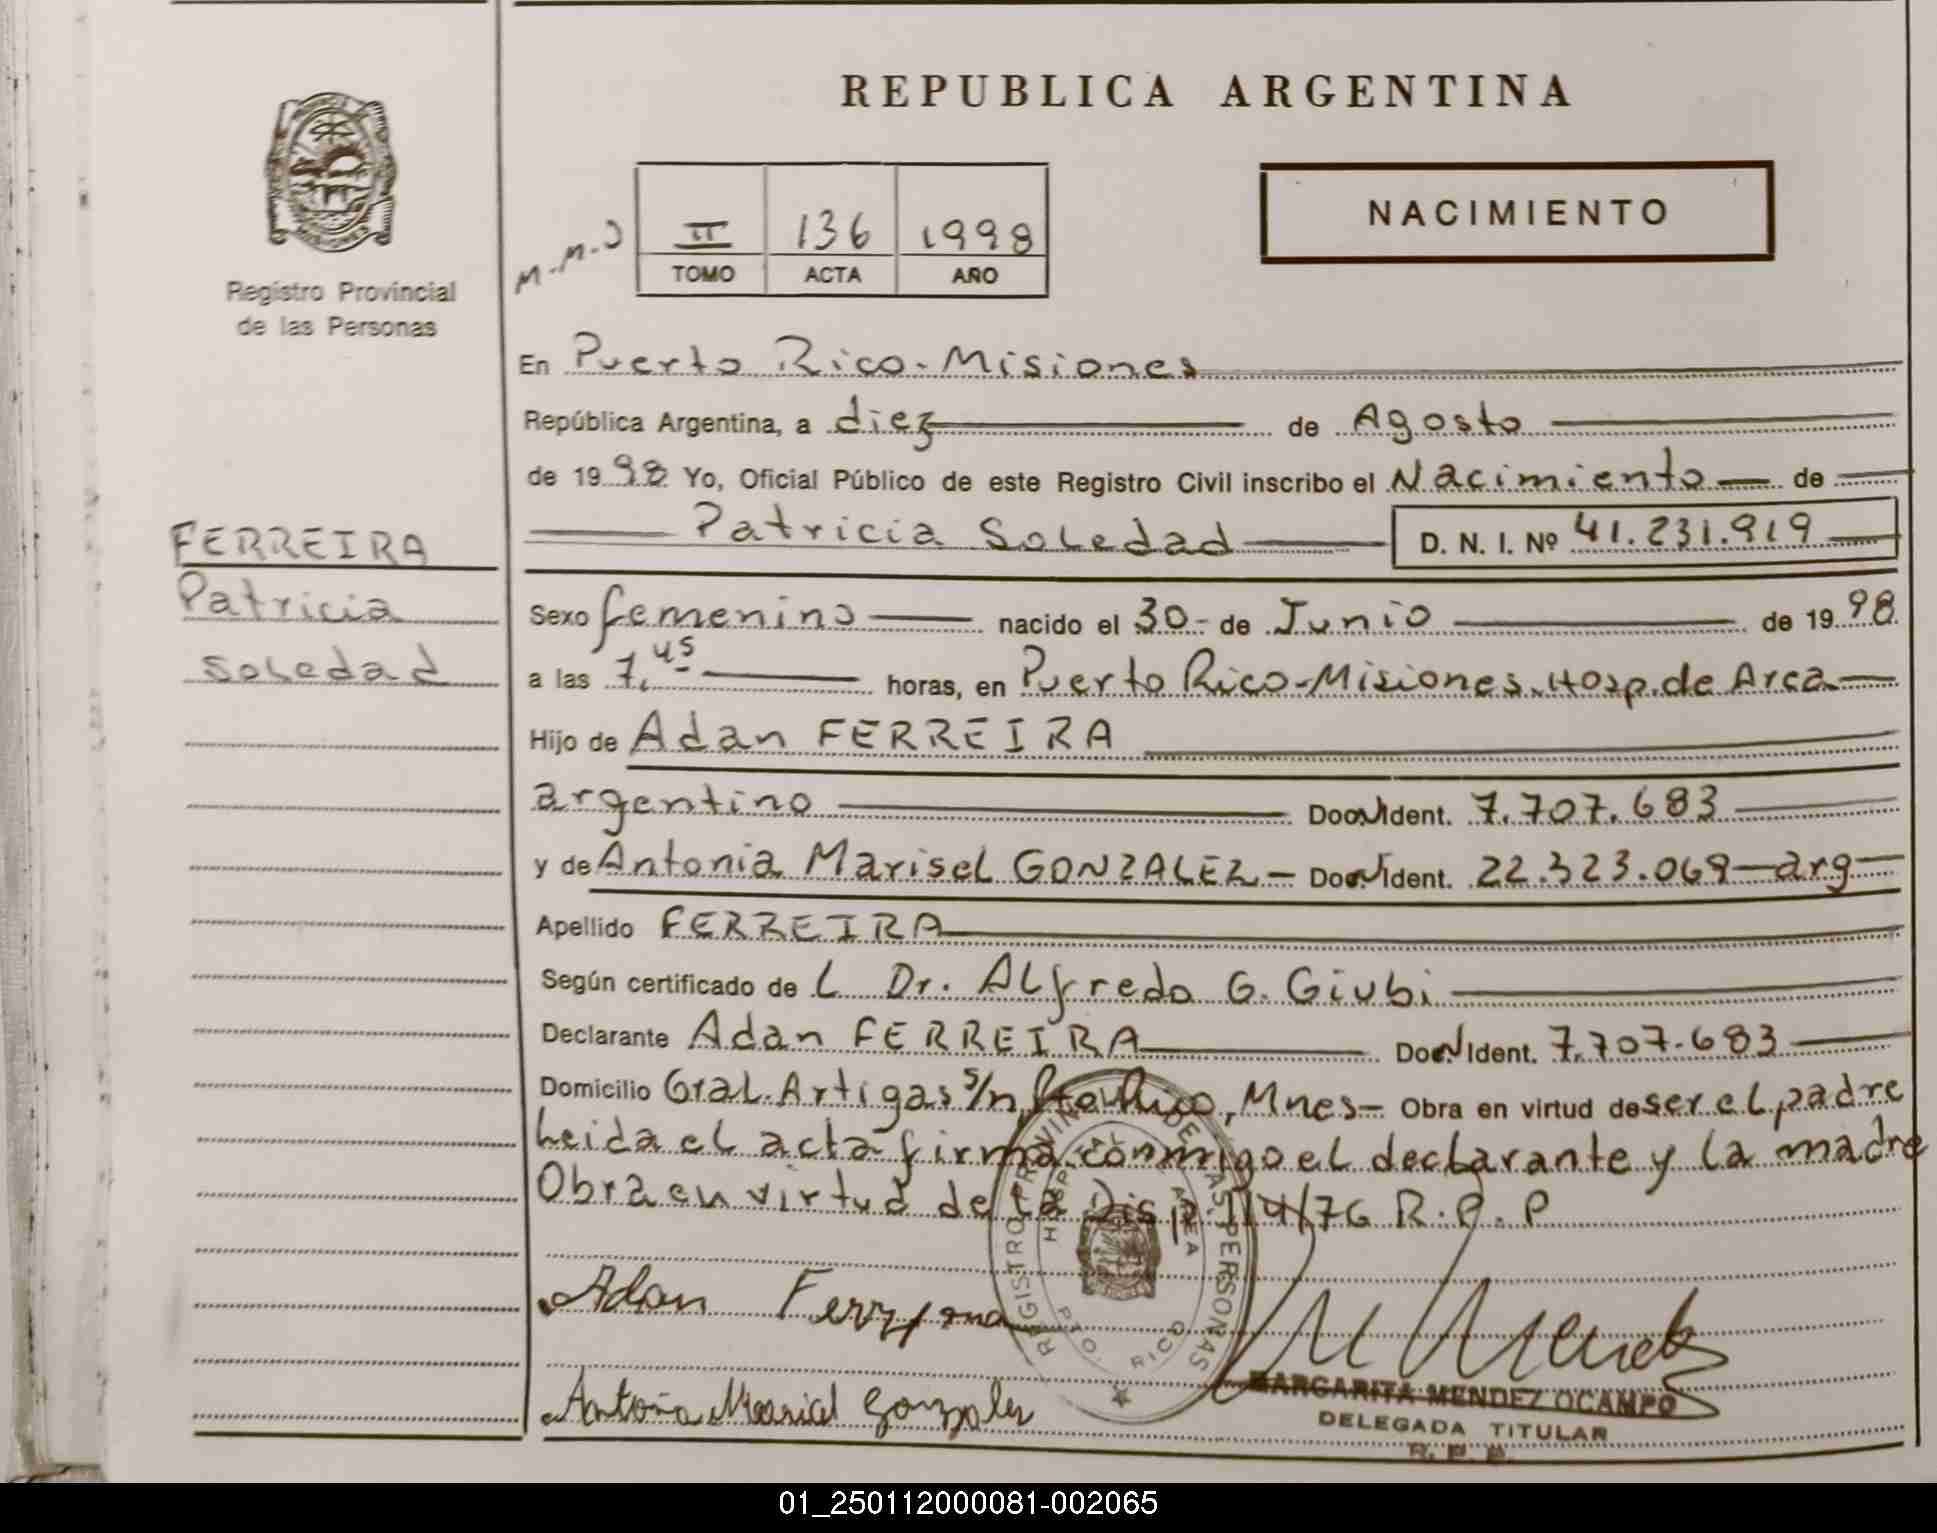 REPUBLICA ARGENTINA
NACIMIENTO
M.M.J
II 136 1998
TOMO ACTA AÑO
Registro Provincial
de las Personas
En Puerto Rico-Misiones
República Argentina, a diez de Agosto
de 1998 Yo, Oficial Público de este Registro Civil inscribo el Nacimiento de
Patricia Soledad D. N. I. Nº 41.231.919
FERREIRA
Patricia
Soledad
Sexo femenino nacido el 30- de Junio de 1998
a las 7,45 horas, en Puerto Rico-Misiones.Hosp.de Area
Hijo de Adan FERREIRA
argentino Doc.N Ident. 7.707.683
y de Antonia Marisel GONZALEZ- Doc.N Ident. 22.323.069-arg
Apellido FERREIRA
Según certificado de L Dr. Alfredo G. Giubi
Declarante Adan FERREIRA Doc.N Ident. 7.707.683
Domicilio Gral.Artigas s/n, Pto Rico, Mnes- Obra en virtud de ser el padre
Leida el acta firma conmigo el declarante y la madre
Obra en virtud de la Disp. 114/76 R.P.P
REGISTRO PROVINCIAL DE LAS PERSONAS
HOSP. AREA
PTO. RICO
Adan
Antonia Marisel Gonzalez
MARGARITA MENDEZ OCAMPO
DELEGADA TITULAR
R. P. P.
01_250112000081-002065